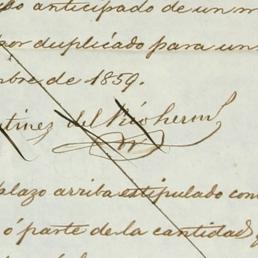 anticipado de un
por duplicado para un
bre de 1859.
tinez del Rio herm
plazo arriba estipulado con
ó parte de la cantidad